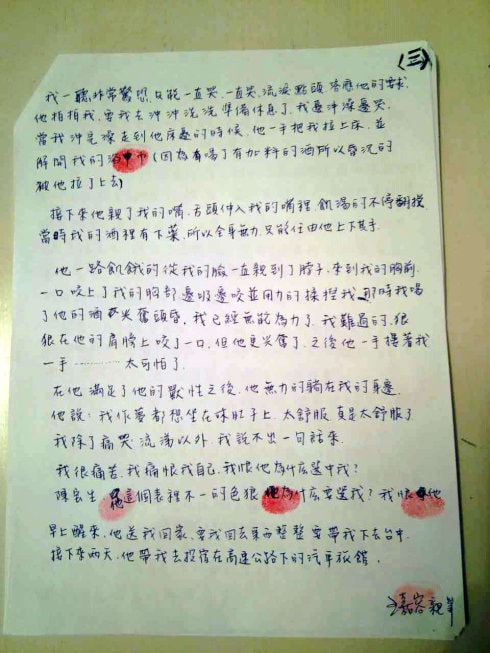 (三)
我一聽非常驚恐,只能一直哭,一直哭,流淚點頭答應他的要求,
他拍拍我,要我去沖沖洗洗準備休息了,我邊沖澡邊哭,
當我沖完澡走到他床邊的時候,他一手把我拉上床,並
解開我的浴巾(因為有喝了有加料的酒所以昏沉的
被他拉了上去)
接下來他親了我的嘴,舌頭伸入我的嘴裡,飢渴的不停翻攪
當時我的酒裡有下藥,所以全身無力,只能任由他上下其手.
他一路飢餓的從我的臉一直親到了脖子,來到我的胸前.
一口咬上了我的胸部邊吸邊咬並用力的揉捏我,那時我喝
了他的酒 興奮頭昏,我已經無能為力了,我難過的,狠
狠在他的肩膀上咬了一口,但他更興奮了,之後他一手摟著我
一手 ………… 太可怕了.
在他滿足了他的獸性之後,他無力的躺在我的身邊,
他說:我作夢都想坐在妳肚子上,太舒服,真是太舒服了
我除了痛哭流 以外,我說不出一句話來.
我很痛苦,我痛恨我自己,我恨他為什麼選中我?
陳宏生 他這個表裡不一的色狼 他為什麼要選我?我恨他
早上醒來,他送我回家,要我回去東西整整要帶我下去台中.
接下來兩天,他帶我去投宿在高速公路下的汽車旅館.
王嘉容親筆